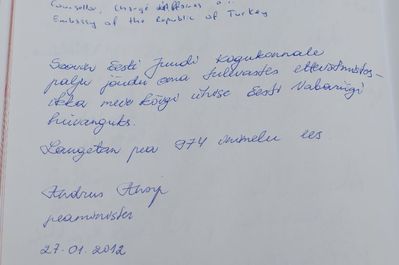 Counsellor, Chargé d'Affaires a.i.
Embassy of the Republic of Turkey
Soovin Eesti Juudi Kogukonnale
palju jõudu oma tulevastes ettevõtmistes -
ikka meie kõigi ühise Eesti Vabariigi
hüvanguks.
Langetan pea 974 inimese ees
Andrus Ansip
peaminister
27.01.2012